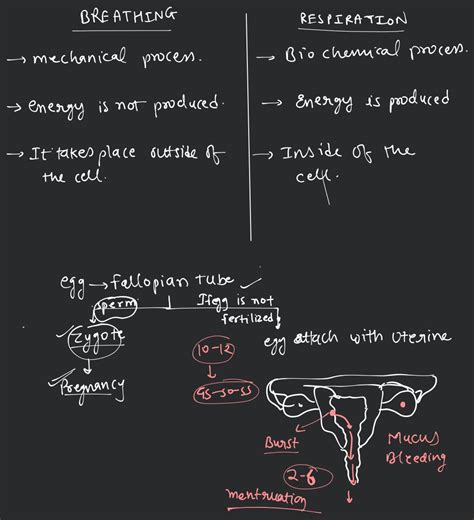 BREATHING
→ mechanical process.
→ energy is not produced.
→ It takes place outside of
the cell.
RESPIRATION
→ Bio chemical process.
→ Energy is produced
→ Inside of the
cell.
egg → fallopian tube ✓
sperm
If egg is not
fertilized
✓ Zygote
✓ Pregnancy
10-12
45-50-55
egg attach with uterine
Burst
Mucus
Bleeding
2-6
mentruation